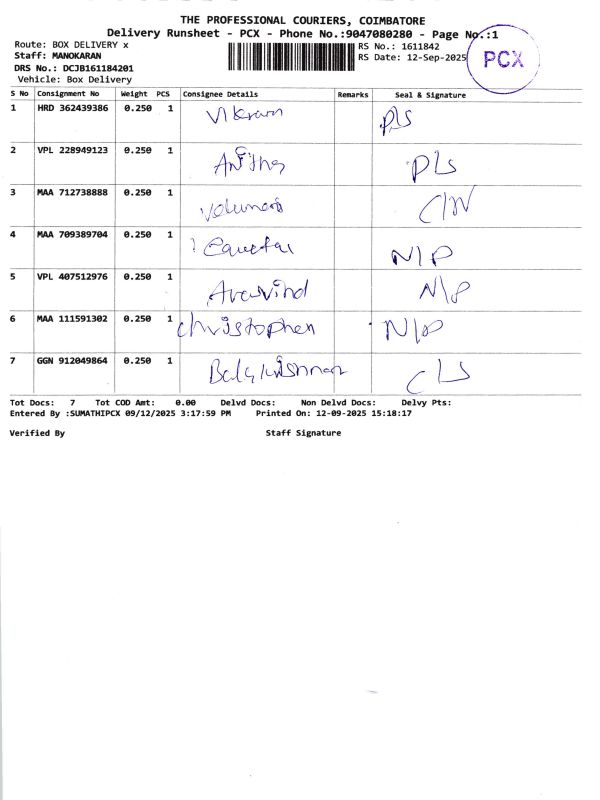 THE PROFESSIONAL COURIERS, COIMBATORE
Delivery Runsheet - PCX - Phone No.:9047080280 - Page No.:1
Route: BOX DELIVERY x
RS No.: 1611842
Staff: MANOKARAN
RS Date: 12-Sep-2025
DRS No.: DCJB161184201
Vehicle: Box Delivery
PCX
S No Consignment No Weight PCS Consignee Details Remarks Seal & Signature
1 HRD 362439386 0.250 1 Vikram PLS
2 VPL 228949123 0.250 1 Anitha PLS
3 MAA 712738888 0.250 1
4 MAA 709389704 0.250 1 N/P
5 VPL 407512976 0.250 1 Aravind N/P
6 MAA 111591302 0.250 1 Christopher N/P
7 GGN 912049864 0.250 1 CLS
Tot Docs: 7 Tot COD Amt: 0.00 Delvd Docs: Non Delvd Docs: Delvy Pts:
Entered By :SUMATHIPCX 09/12/2025 3:17:59 PM Printed On: 12-09-2025 15:18:17
Verified By Staff Signature